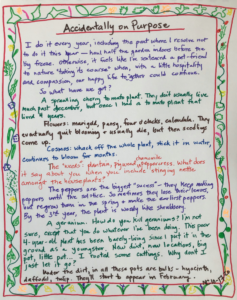 Accidentally on Purpose
I do it every year, including the past where I resolve not
to do it this year — haul half the garden indoors before the
big freeze. Otherwise, it feels like I've ordered a pet-friend
to nature taking its course when, with a little hospitality
and compassion, our happy life together could continue.
So what have we got?
A spreading cherry tomato plant. They don't usually live
much past December, but once I had a tomato plant that
lived 4 years.
Flowers: marigold, pansy, four o'clocks, calendula. They
eventually quit blooming + usually die, but then seedlings
come up.
Cosmos: whack off the whole plant, stick it in water,
continues to bloom for months.
The "weeds": plantain, What does
it say about you when you include stinging nettle
amongst the houseplants?
The peppers are the biggest "success" — they keep making
peppers until the solstice. Sometimes they lose their leaves,
but regrow them in the spring + make the earliest peppers.
By the 3rd year, the plant is woody like shrubbery.
A geranium. How do you kill geraniums? I'm not
sure, except that you do whatever I've been doing. This poor
4-year-old plant has been barely living since I put it in the
ground as a youngster. New dirt, new locations, big
pot, little pot... I rooted some cuttings. Why don't I
just let it go?
Under the dirt, in all these pots are bulbs — hyacinth,
daffodil, tulip. They'll start to appear in February.